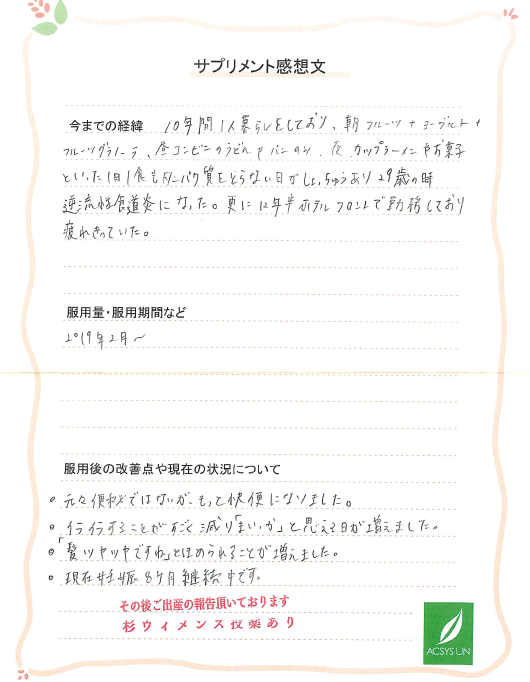 サプリメント感想文
今までの経緯 10年間1人暮らしをしており、朝フルーツ+ヨーグルト+
フルーツグラノーラ、昼コンビニのうどんやパンのみ、夜カップラーメンやお菓子
といった1日1食もタンパク質をとらない日がしょっちゅうあり29歳の時
逆流性食道炎になった。更に12年半ホテルフロントで勤務しており
疲れきっていた。
服用量・服用期間など
2019年2月〜
服用後の改善点や現在の状況について
。元々便秘ではないが、もっと快便になりました。
。イライラすることがすごく減り「まいっか」と思える日が増えました。
。「髪ツヤツヤですね」とほめられることが増えました。
。現在妊娠8ヶ月継続中です。
その後ご出産の報告頂いております
杉ウィメンズ投薬あり
ACSYS UN